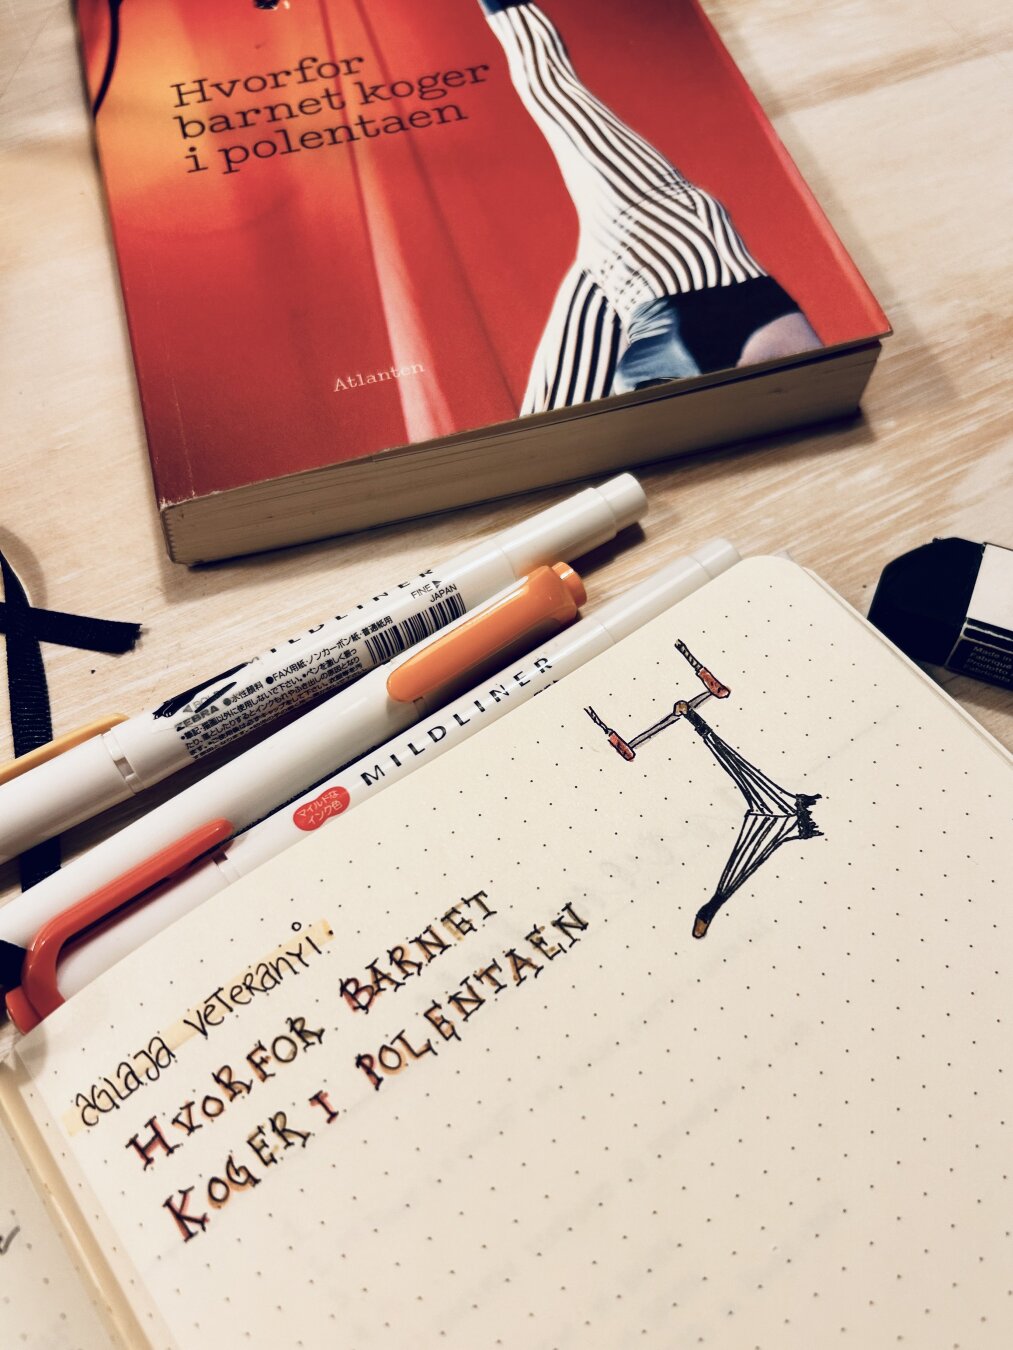 Hvorfor
barnet koger
i polentaen
Atlanten
MILDLINER
FINE
JAPAN
ZEBRA ●水性顔料 ●FAX用紙・ノンカーボン紙・普通紙用
MILDLINER
マイルドな
インク色
Made in
AGLAJA VETERANYI.
HVORFOR BARNET
KOGER I POLENTAEN